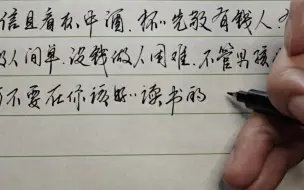 信且看杯中酒.杯杯先敬有钱人.
做人间单.没钱做人困难.不管男孩
不要在你该好好读书的